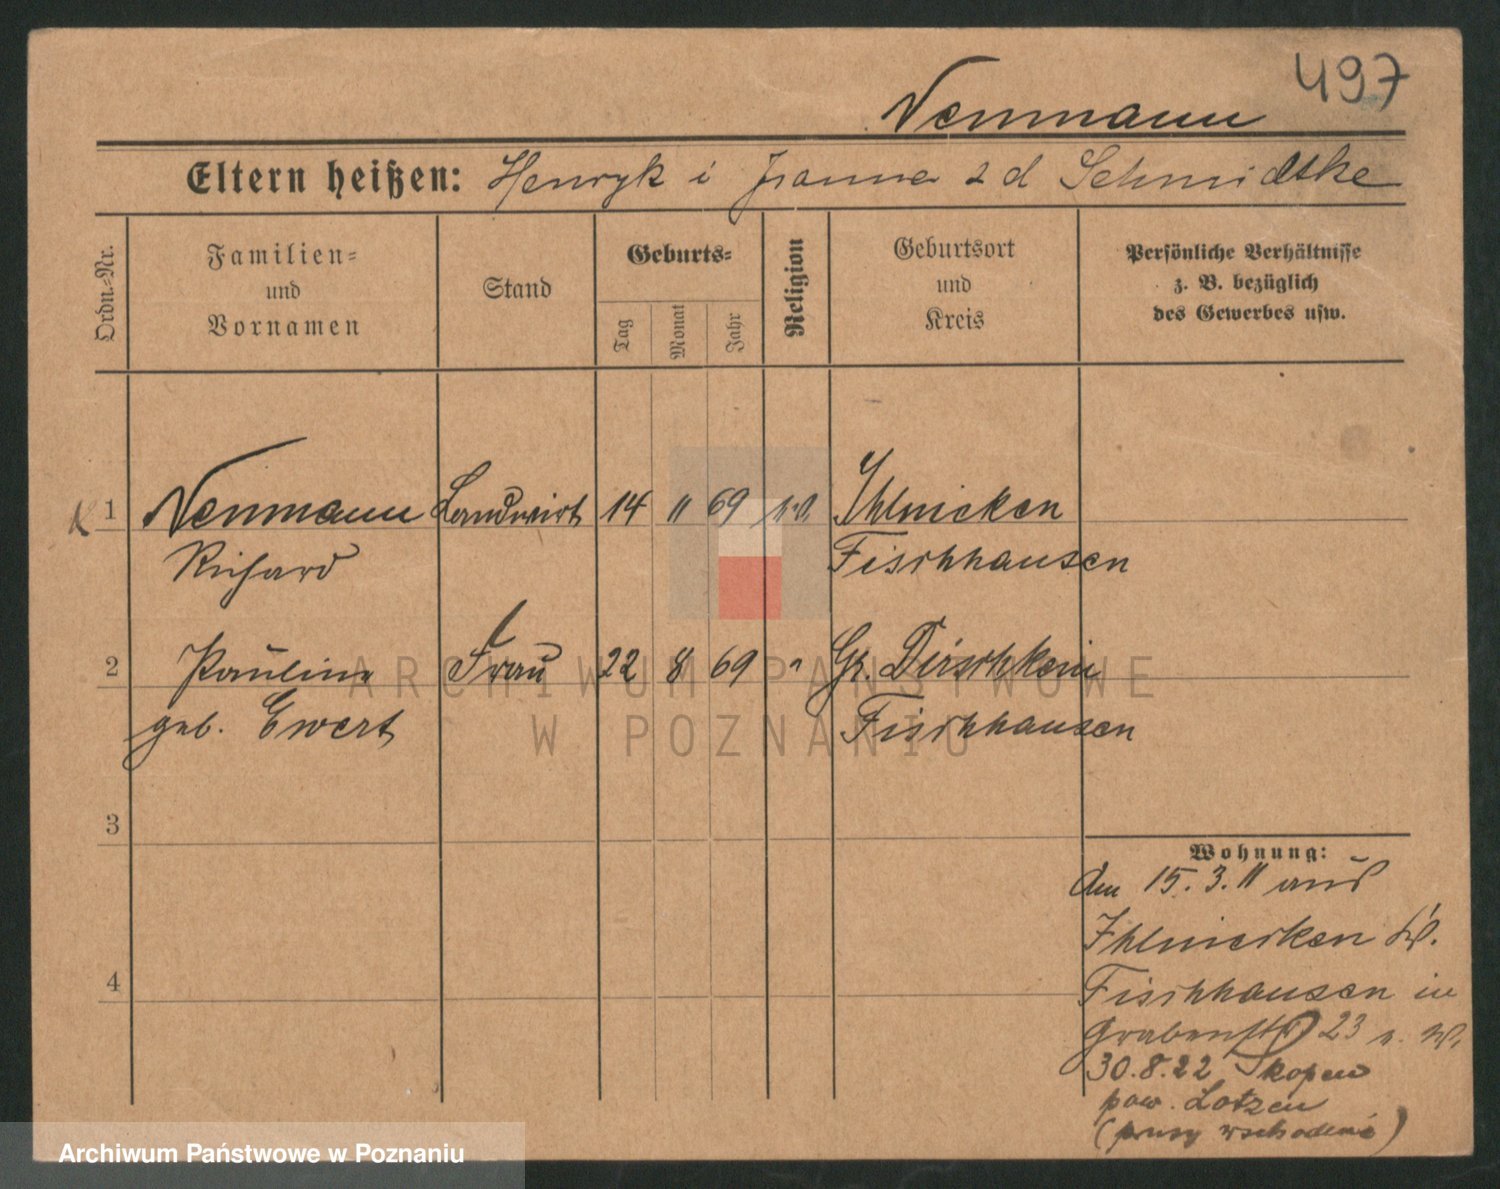 497
Neumann
Eltern heißen: Henryk i Joanna z d Schmidtke
Ordn.-Nr.
Familien-
und
Vornamen
Stand
Geburts-
Tag
Monat
Jahr
Religion
Geburtsort
und
Kreis
Persönliche Verhältnisse
z. B. bezüglich
des Gewerbes usw.
1 Neumann Landwirt 14 11 69 Ihlnicken
Richard Fischhausen
2 Pauline Frau 22 8 69 " Gr. Dirschkeim
geb. Ewert Fischhausen
3
4
Wohnung:
Am 15. 3. 11 aus
Ihlnicken Kr.
Fischhausen in
Grabenstr 23
30.8.22 Skopen
pow. Lotzen
(prusy wschodnie)
ARCHIWUM PAŃSTWOWE
W POZNANIU
Archiwum Państwowe w Poznaniu